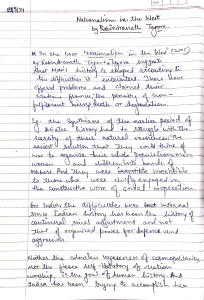 Nationalism in the West
by Rabindranath Tagore
In the "Nationalism in the West"
by Rabindranath Tagore suggests
that Man's history is shaped according to
the difficulties it encounters. These have
offered problems and claimed their
solutions from us, the penalty of non-
fulfilment being death or degradation.
Eg:- the Scythians of the earlier period of
Asiatic history had to struggle with the
scarcity of their natural resources. The
easiest solution that they could think of
was to organize their whole population men, women
and children into bands of
robbers. And they were irresistible
to those who were chiefly engaged in
the constructive work of social cooperation.
For India the difficulties was internal
Since Indian history has been the history of
continual social adjustment and not
that of organized power for defence and
aggression.
Neither the colourless vagueness of cosmopolitanism
nor the fierce self-idolatry of nation
worship is the goal of human history. And
India has been trying to accomplish her